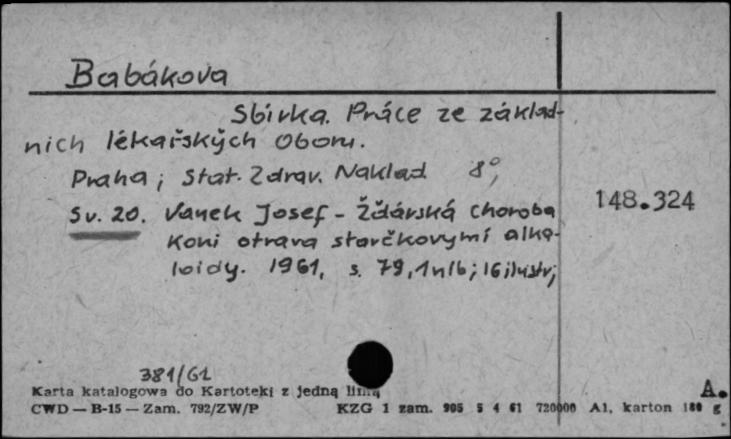 Babákova
Sbirka. Práce ze základ-
nich lékařských oboru.
Praha; Stat. Zdrav. Naklad 8°,
148.324
Sv. 20. Vanek Josef - Žďárská choroba
koni otrava starčkovymí alka-
loidy. 1961, s. 79, 1 nlb; 16 ilustr;
381/61
Karta katalogowa do Kartoteki z jedną linią
CWD — B-15 — Zam. 792/ZW/P KZG 1 zam. 905 5 4 61 720000 A1, karton 180 g
A.